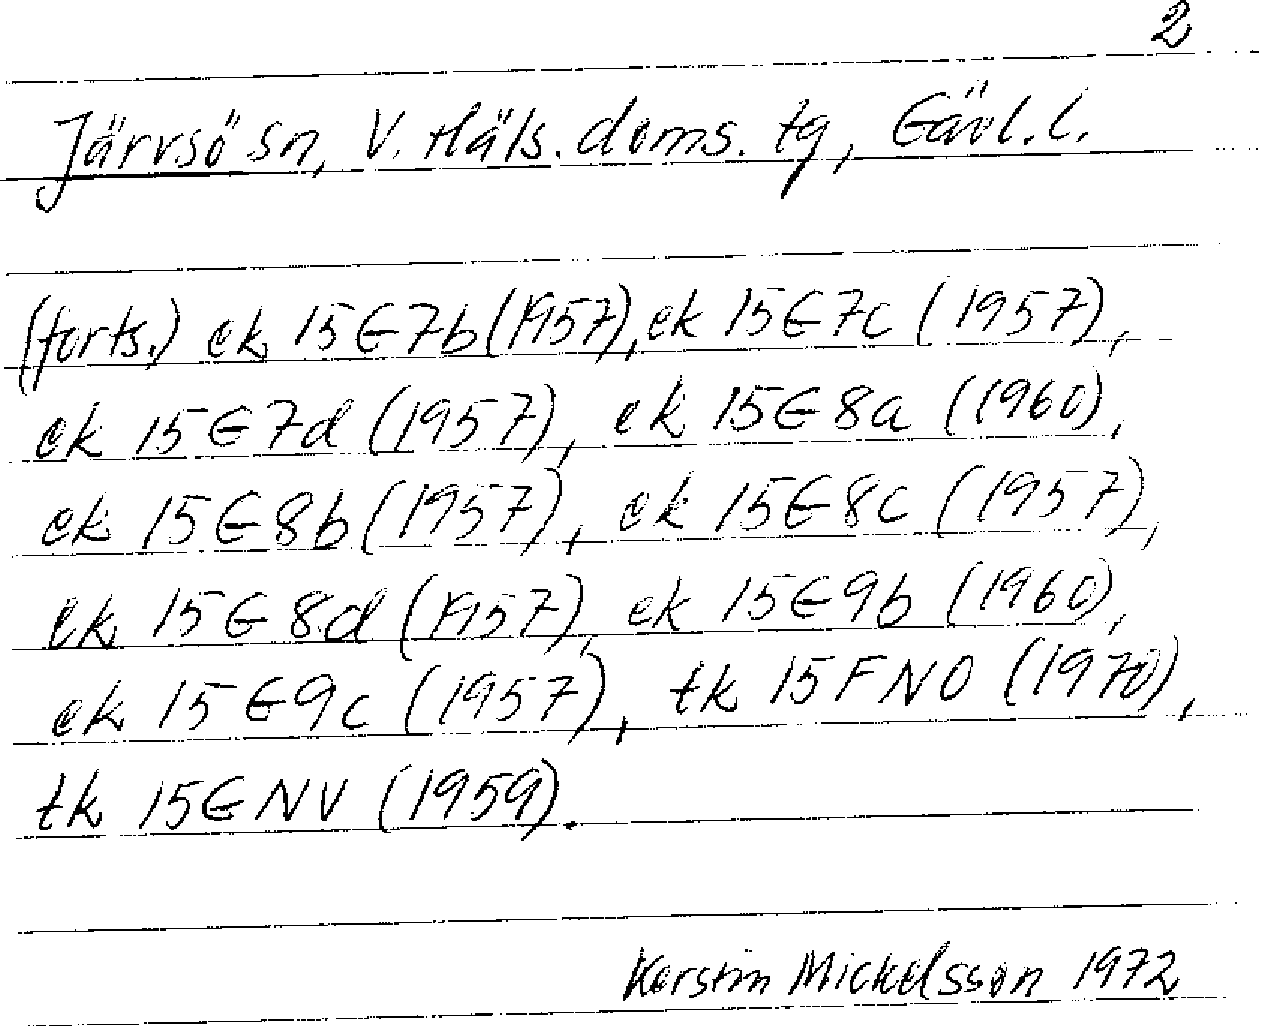 2
Järvsö sn, V. Häls. doms. tg, Gävl. l.
(forts.) ek 15E7b (1957), ek 15E7c (1957),
ek 15E7d (1957), ek 15E8a (1960),
ek 15E8b (1957), ek 15E8c (1957),
ek 15E8d (1957), ek 15E9b (1960),
ek 15E9c (1957), tk 15FNO (1970),
tk 15ENV (1959).
Kerstin Mickelsson 1972